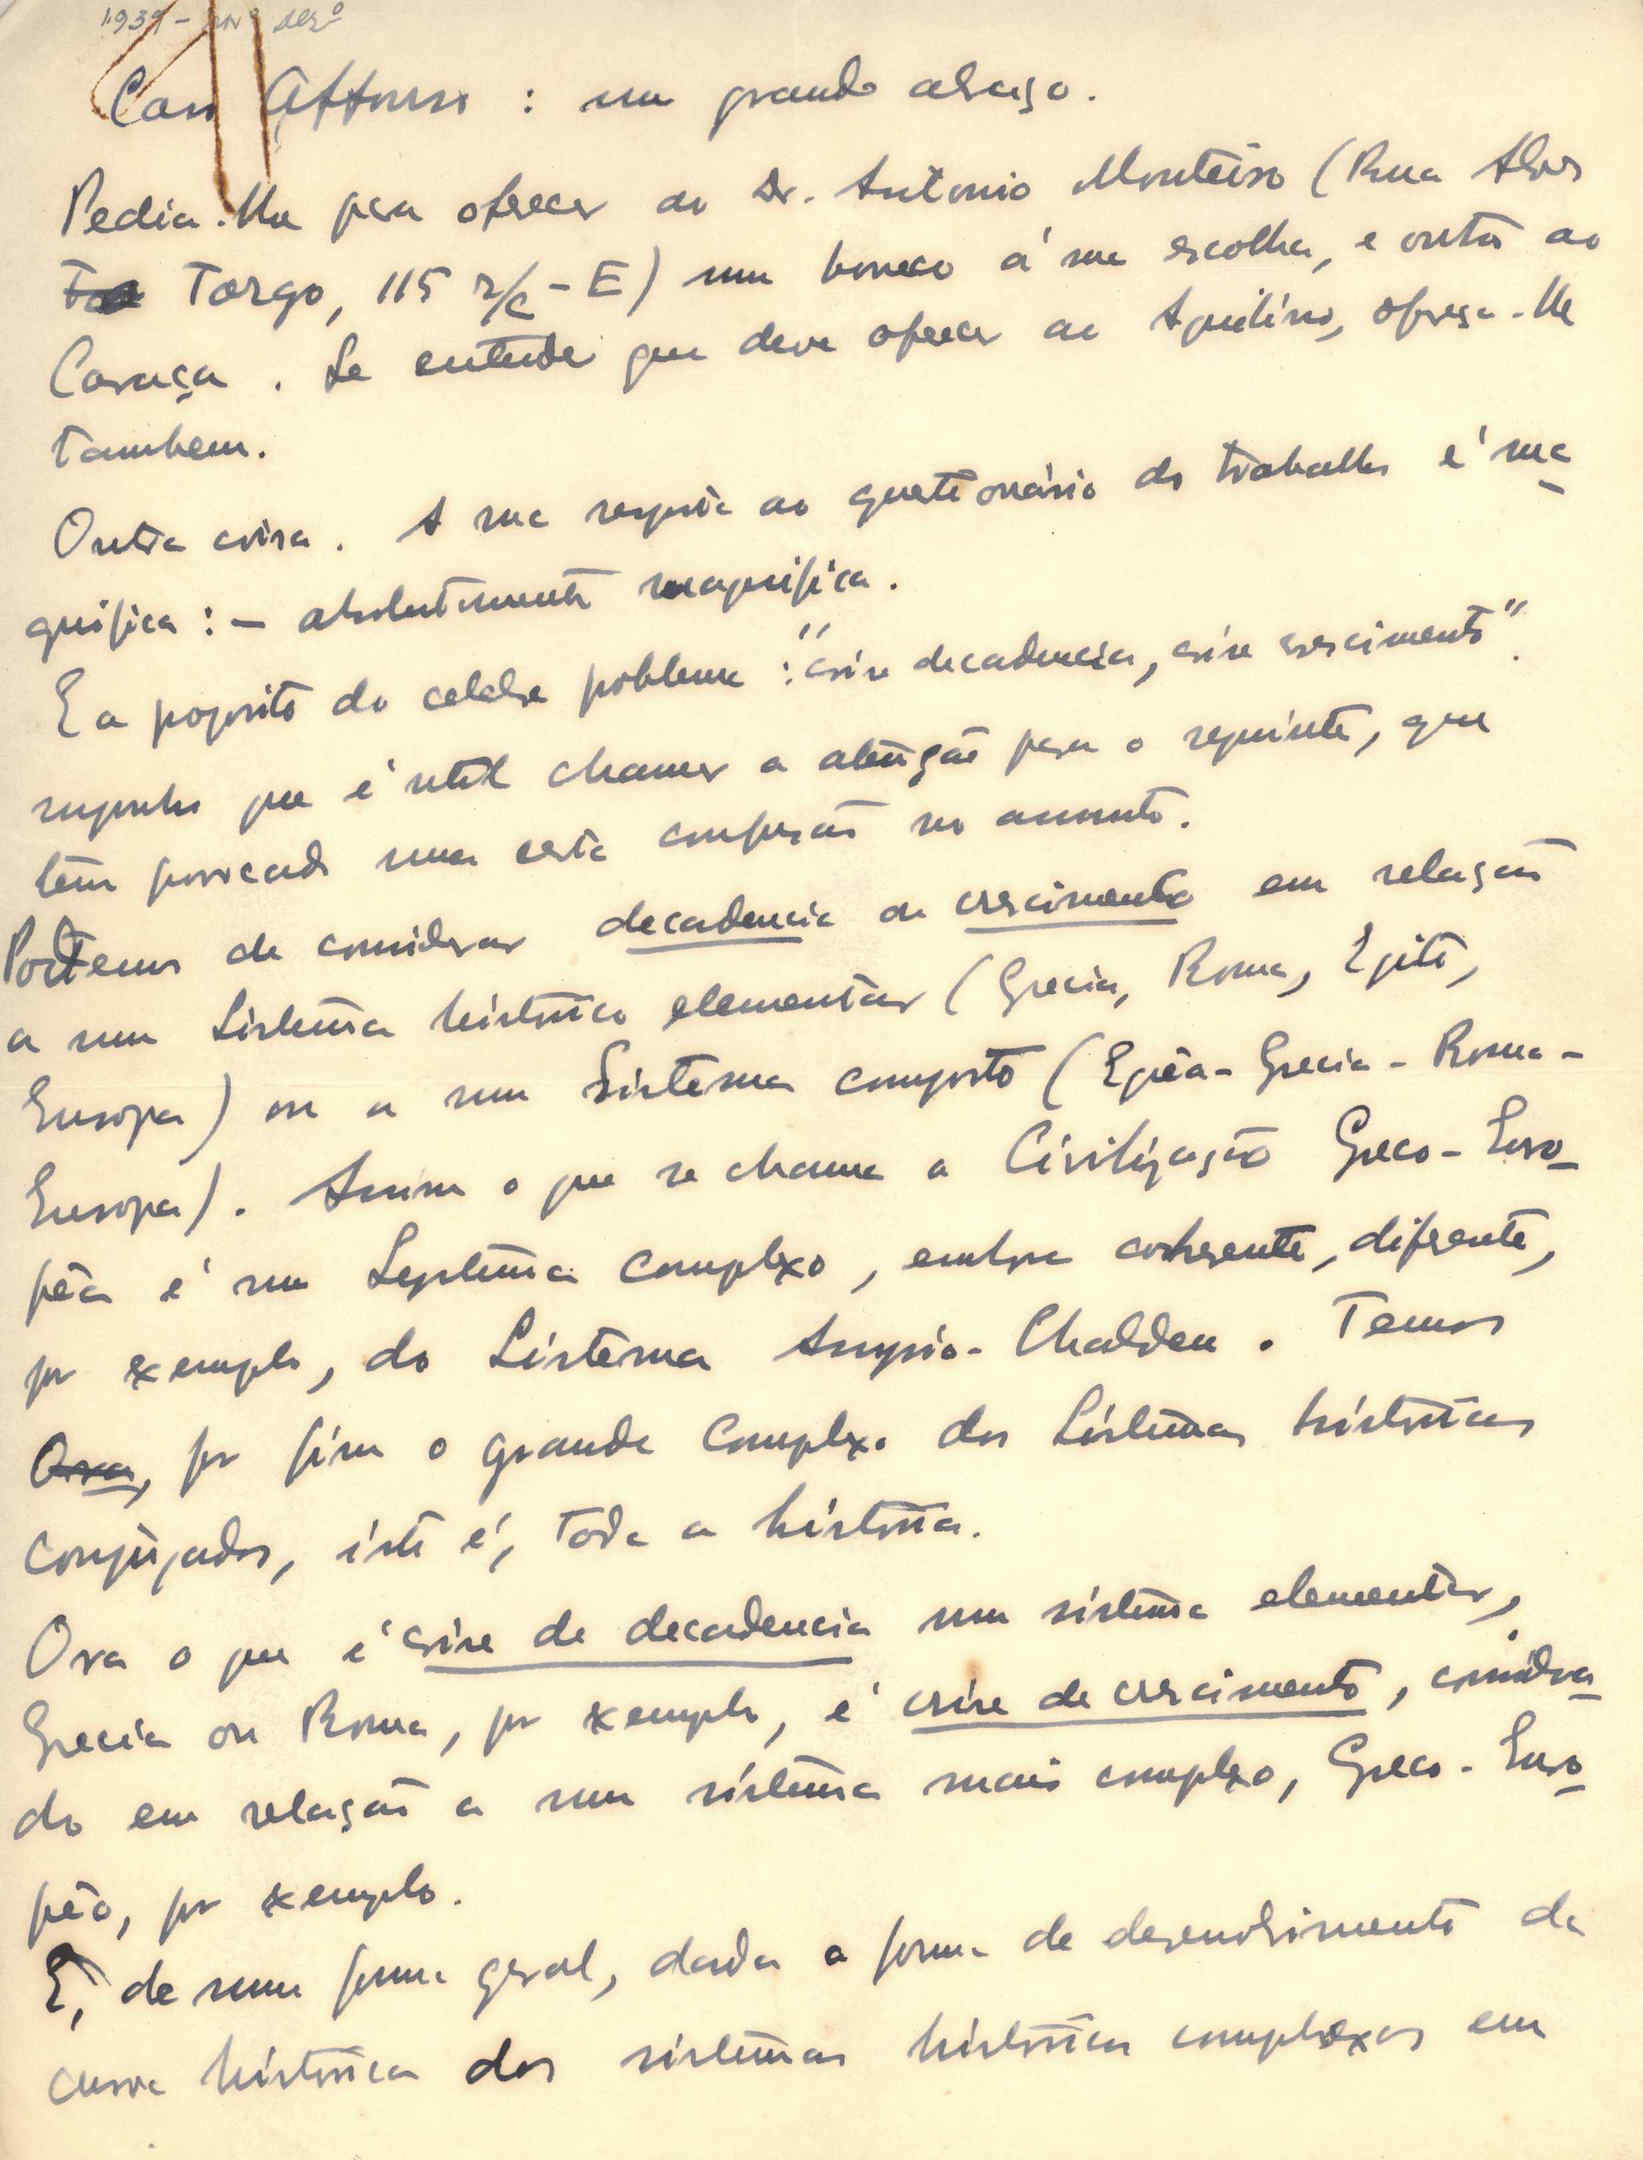 1939 -
Caro Affonso : um grande abraço.
Pedia-lhe para oferecer ao Dr. Antonio Monteiro (Rua Alves
Torgo, 115 r/c - E) um boneco á sua escolha, e outro ao
Caraça. Se entender que deve oferecer ao Aquilino, ofereça-lhe
tambem.
Outra coisa. A sua resposta ao questionário do trabalho é ma
gnifica : - absolutamente magnifica.
E a proposito do celebre problema : "crise decadencia, crise crescimento".
suponho que é util chamar a atenção para o seguinte, que
tem provocado uma certa confusão no assunto.
Podemos de considerar decadencia ou crescimento em relação
a um Sistema histórico elementar (Grecia, Roma, Egito,
Europa) ou a um Sistema composto (Egêa - Grecia - Roma -
Europa). Assim o que se chama a Civilização Greco - Euro
pêa é um Septema complexo, embora coherente, diferente,
por exemplo, do Sistema Assyrio - Chaldeu. Temos
Ora, por fim o grande Complexo dos Sistemas históricos
conjugados, isto é, toda a história.
Ora o que é crise de decadencia num sistema elementar,
Grecia ou Roma, por exemplo, é crise de crescimento, considera
do em relação a um sistema mais complexo, Greco - Euro
pêo, por exemplo.
E, de uma forma geral, dada a forma de desenvolvimento da
curva histórica dos sistemas históricos complexos em